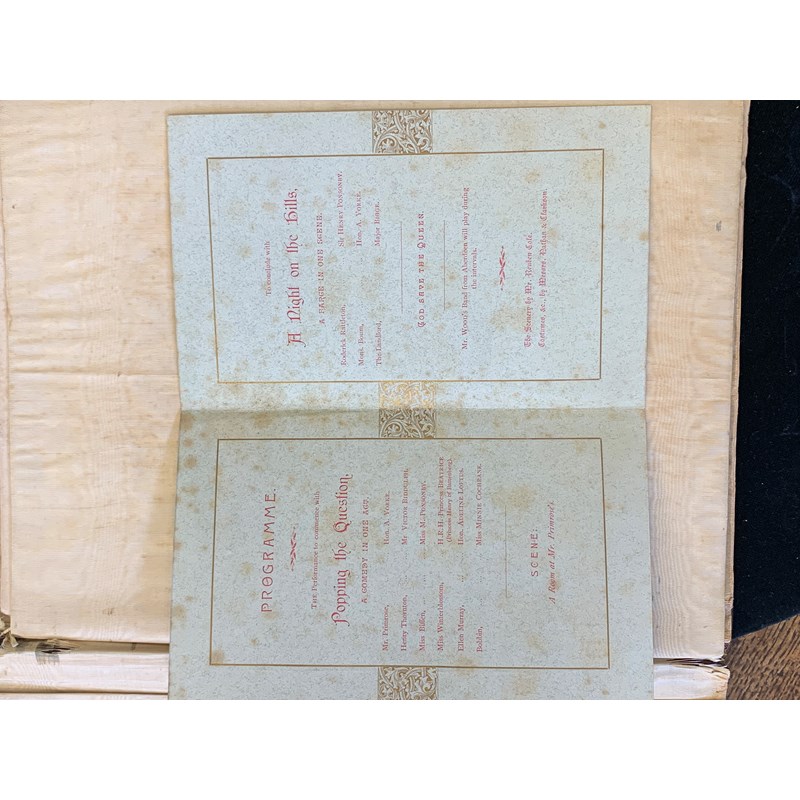 PROGRAMME.
THE Performance to commence with
Popping the Question,
A COMEDY IN ONE ACT.
Mr. Primrose, Hon. A. YORKE.
Henry Thornton, Mr. VICTOR BIDDULPH.
Miss Biffin, Miss M. PONSONBY.
Miss Winterblossom, H.R.H. PRINCESS BEATRICE
(Princess Henry of Battenberg).
Ellen Murray, Hon. AUBYNE LOFTUS.
Bobbin, Miss MINNIE COCHRANE.
SCENE:
A Room at Mr. Primrose's.
To conclude with
A Night on the Hills,
A FARCE IN ONE SCENE.
Roderick Sir HENRY PONSONBY.
Monk Hon. A. YORKE.
The Landlord, Major BIGGE.
GOD SAVE THE QUEEN.
Mr. Wood's Band from Aberdeen will play during
the intervals.
The Scenery by Mr. Reuben Cale.
Costumes, &c., by Messrs. Nathan & Clarkson.